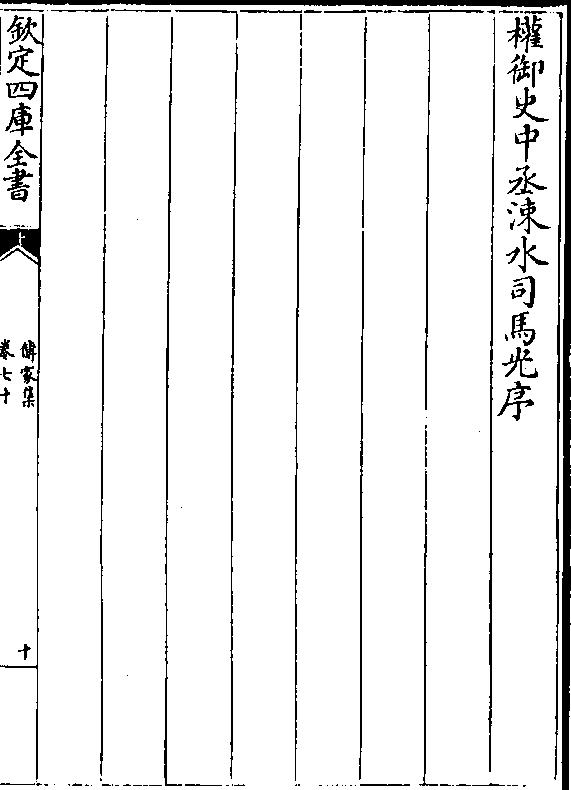 權御史中丞涑水司馬光序
欽定四庫全書
傳家集
卷七十
十